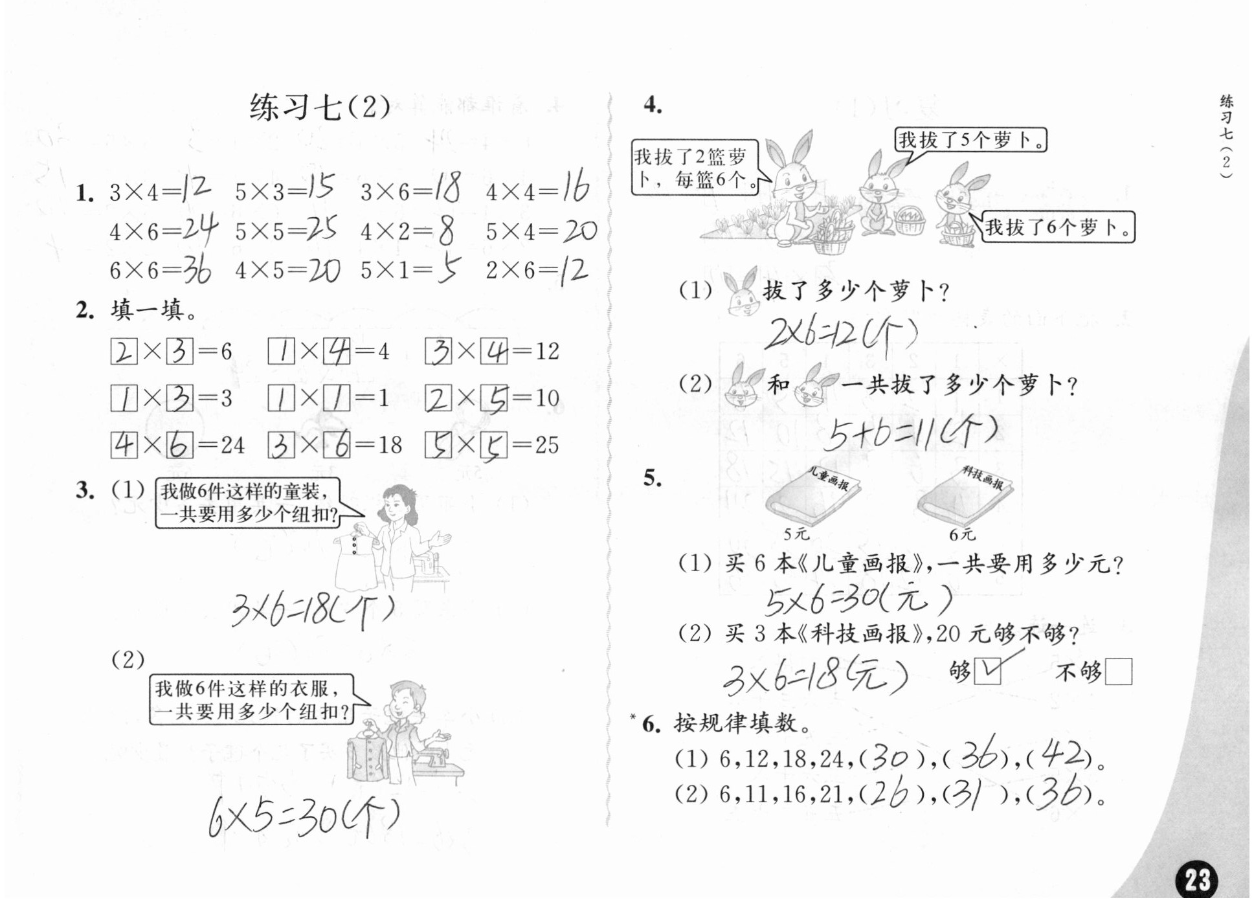 练习七(2)
1. 3×4=12 5×3=15 3×6=18 4×4=16
4×6=24 5×5=25 4×2=8 5×4=20
6×6=36 4×5=20 5×1=5 2×6=12
2. 填一填。
2×3=6 1×4=4 3×4=12
1×3=3 1×1=1 2×5=10
4×6=24 3×6=18 5×5=25
3. (1) 我做6件这样的童装，
一共要用多少个纽扣?
3×6=18(个)
(2)
我做6件这样的衣服，
一共要用多少个纽扣?
6×5=30(个)
4.
我拔了2篮萝
卜，每篮6个。
我拔了5个萝卜。
我拔了6个萝卜。
(1) 拔了多少个萝卜?
2×6=12(个)
(2) 和 一共拔了多少个萝卜?
5+6=11(个)
5.
儿童画报 科技画报
5元 6元
(1) 买 6 本《儿童画报》,一共要用多少元?
5×6=30(元)
(2) 买 3 本《科技画报》,20 元够不够?
3×6=18(元) 够☑ 不够□
*6. 按规律填数。
(1) 6,12,18,24,(30),(36),(42)。
(2) 6,11,16,21,(26),(31),(36)。
练习七(2)
23